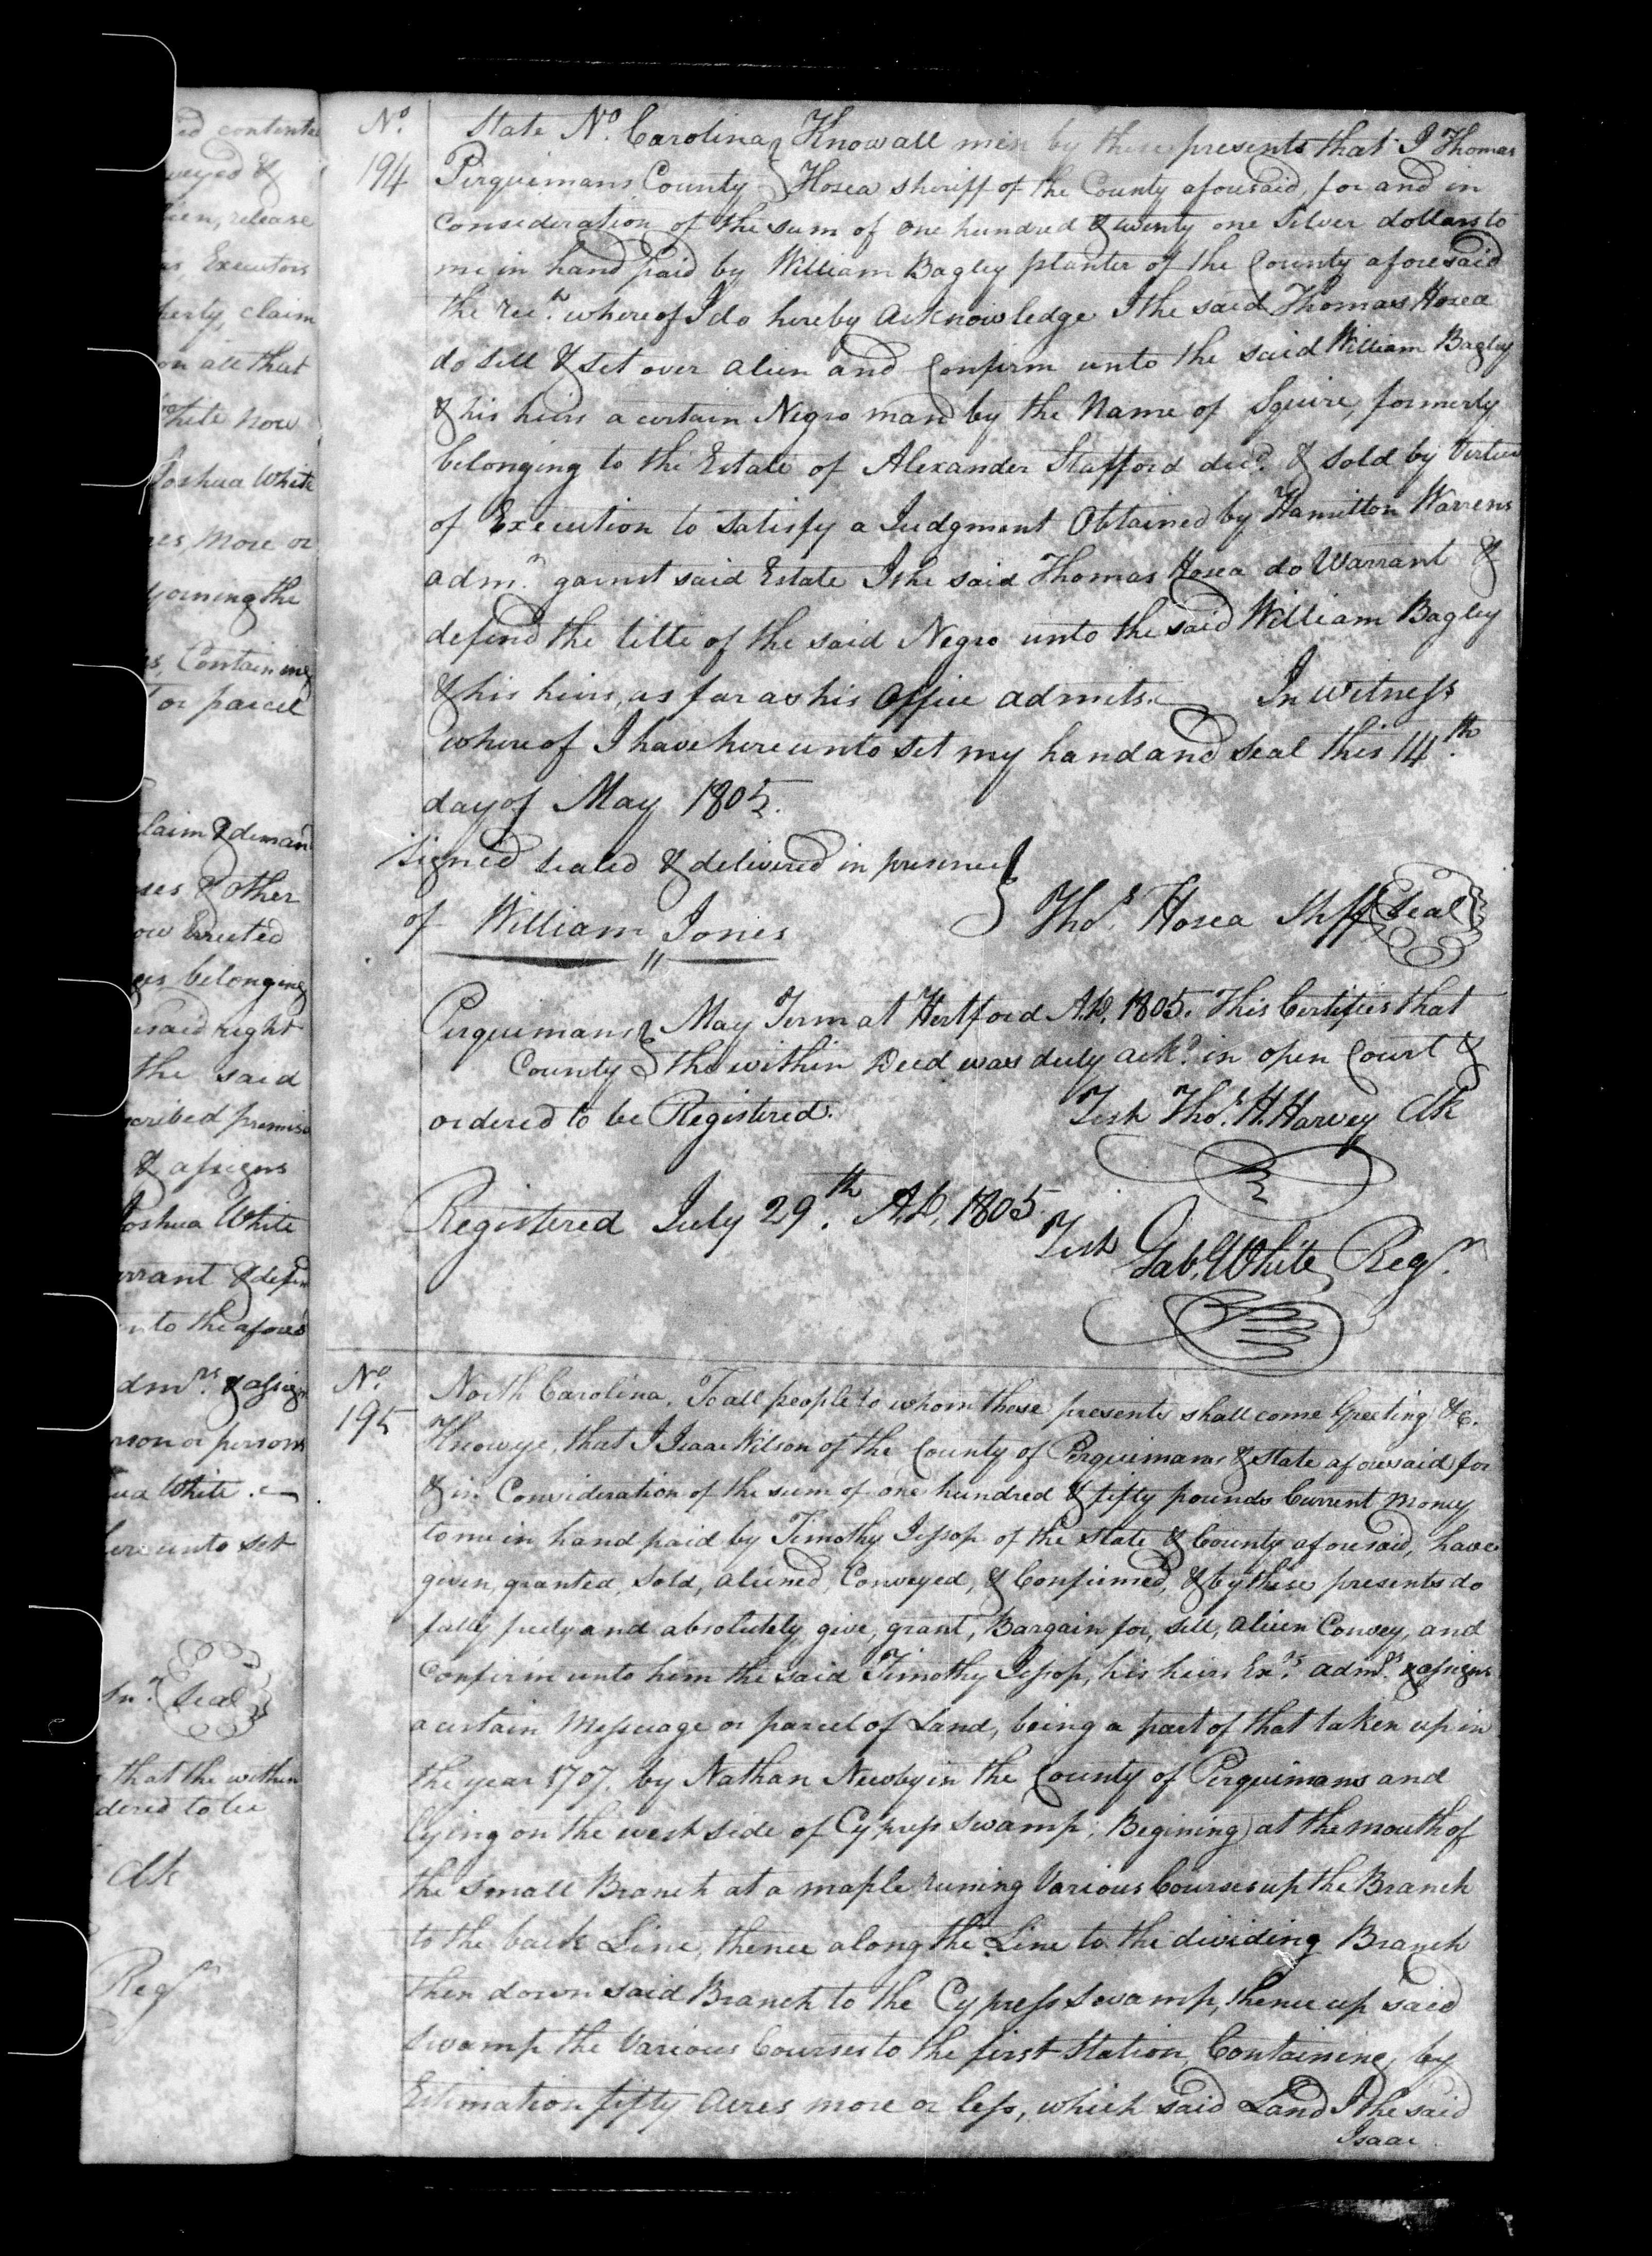 ed contente
veyed &
lien, release
rs, Executors
perty, claim
on all that
White now
Joshua White
res, More or
joining the
s, Containing
or parcel
laim & deman
ses & other
ow Erected
ges belonging
esaid right
the said
scribed premise
& assigns
Joshua White
arrant & defen
unto the afores
dmrs. & assign
rson or persons
ua White.
hereunto set
Senr. Seal
that the within
dered to be
Clk
Regr
No. State No. Carolina } Know all men by these presents that I Thomas
194 Perquimans County } Hosea Sheriff of the County aforesaid, for and in
Consideration of the sum of one hundred & twenty one Silver dollars to
me in hand paid by William Bagley planter of the County aforesaid
the rect. whereof I do hereby acknowledge I the said Thomas Hosea
do sell & set over alien and Confirm unto the said William Bagley
& his heirs a certain Negro man by the Name of Squire, formerly
belonging to the Estate of Alexander Stafford decd. & sold by Vertue
of Execution to Satisfy a Judgment Obtained by Hamilton Warrens
admr. gainst said Estate I the said Thomas Hosea do Warrant &
defend the title of the said Negro unto the said William Bagley
& his heirs, as far as his Office admits. In Witness
whereof I have hereunto set my hand and Seal this 14th.
day of May 1805.
Signed Sealed & delivered in presence }
of William Jones } Thos. Hosea Shff Seal
Perquimans } May Term at Hertford A.D. 1805. This Certifies that
County } the within Deed was duly ackd. in open Court &
ordered to be Registered. Test Thos. H. Harvey Clk
Registered July 29th. A.D. 1805.
Test Gab. White Regr.
No. North Carolina, To all people to whom these presents shall come Greeting &c.
195 Know ye, that I Isaac Wilson of the County of Perquimans & State aforesaid for
& in Consideration of the sum of one hundred & fifty pounds Current Money
to me in hand paid by Timothy Jessop of the State & County aforesaid, have
given, granted, Sold, aliened, Conveyed, & Confirmed, & by these presents do
fully freely and absolutely give, grant, Bargain for, sell, alien Convey, and
Confirm unto him the said Timothy Jessop, his heirs Exrs. admrs. & assigns
a certain Messuage or parcel of Land, being a part of that taken up in
the year 1707. by Nathan Newby in the County of Perquimans and
lying on the west side of Cypress Swamp; Begining at the mouth of
the Small Branch at a maple runing Various Courses up the Branch
to the back Line, thence along the Line to the dividing Branch
then down said Branch to the Cypress Swamp, thence up said
Swamp the Various Courses to the first Station, Containing, by
Estimation fifty Acres more or less, which said Land I the said
Isaac